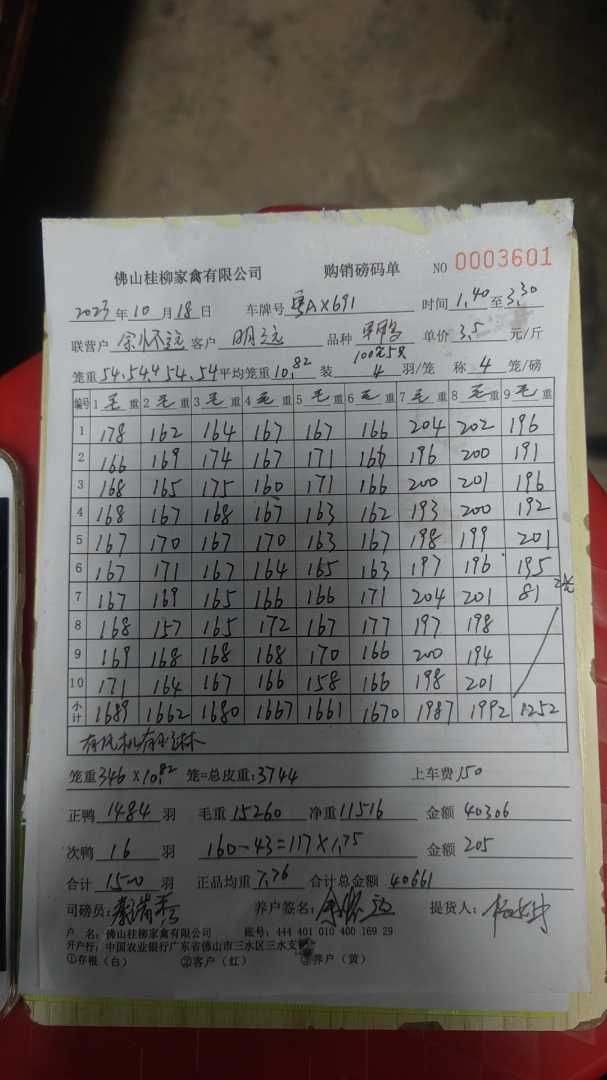 佛山桂柳家禽有限公司 购销磅码单 NO 0003601
2023年10月18日 车牌号 粤AX691 时间 1.40至3.30
联营户 余怀远 客户 明远 品种 单价 3.5 元/斤
笼重 54.54.4 54.54 平均笼重 10.82 装 4 羽/笼 称 4 笼/磅
编号 1 毛 重 2 毛 重 3 毛 重 4 毛 重 5 毛 重 6 毛 重 7 毛 重 8 毛 重 9 毛 重
1 178 162 164 167 167 166 204 202 196
2 166 169 174 167 171 166 196 200 191
3 168 165 175 160 171 166 200 201 196
4 168 167 168 167 163 162 193 200 192
5 167 170 167 170 163 167 198 199 201
6 167 171 167 164 165 163 197 196 195
7 167 169 165 166 166 171 204 201 81
8 168 157 165 172 167 177 197 198
9 169 168 168 168 170 166 200 194
10 171 164 167 166 158 166 198 201
小计 1689 1662 1680 1667 1661 1670 1987 1992 1252
笼重 346 × 10.82 笼=总皮重: 3744 上车费 150
正鸭 1484 羽 毛重 15260 净重 11516 金额 40306
次鸭 16 羽 160-43=117×1.75 金额 205
合计 1500 羽 正品均重 7.76 合计总金额 40661
司磅员: 养户签名: 提货人:
户 名: 佛山桂柳家禽有限公司 账号: 444 401 010 400 169 29
开户行: 中国农业银行广东省佛山市三水区三水支
①存根（白） ②客户（红） ③养户（黄）